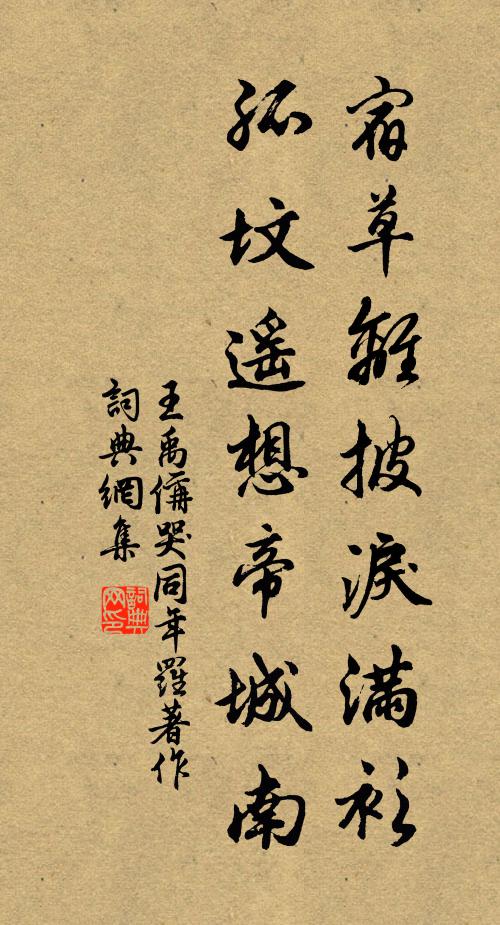 宿草離披淚滿衫
孤墳遥想帝城南
王禹偁哭同年羅著作
詞典網集
詞典網印